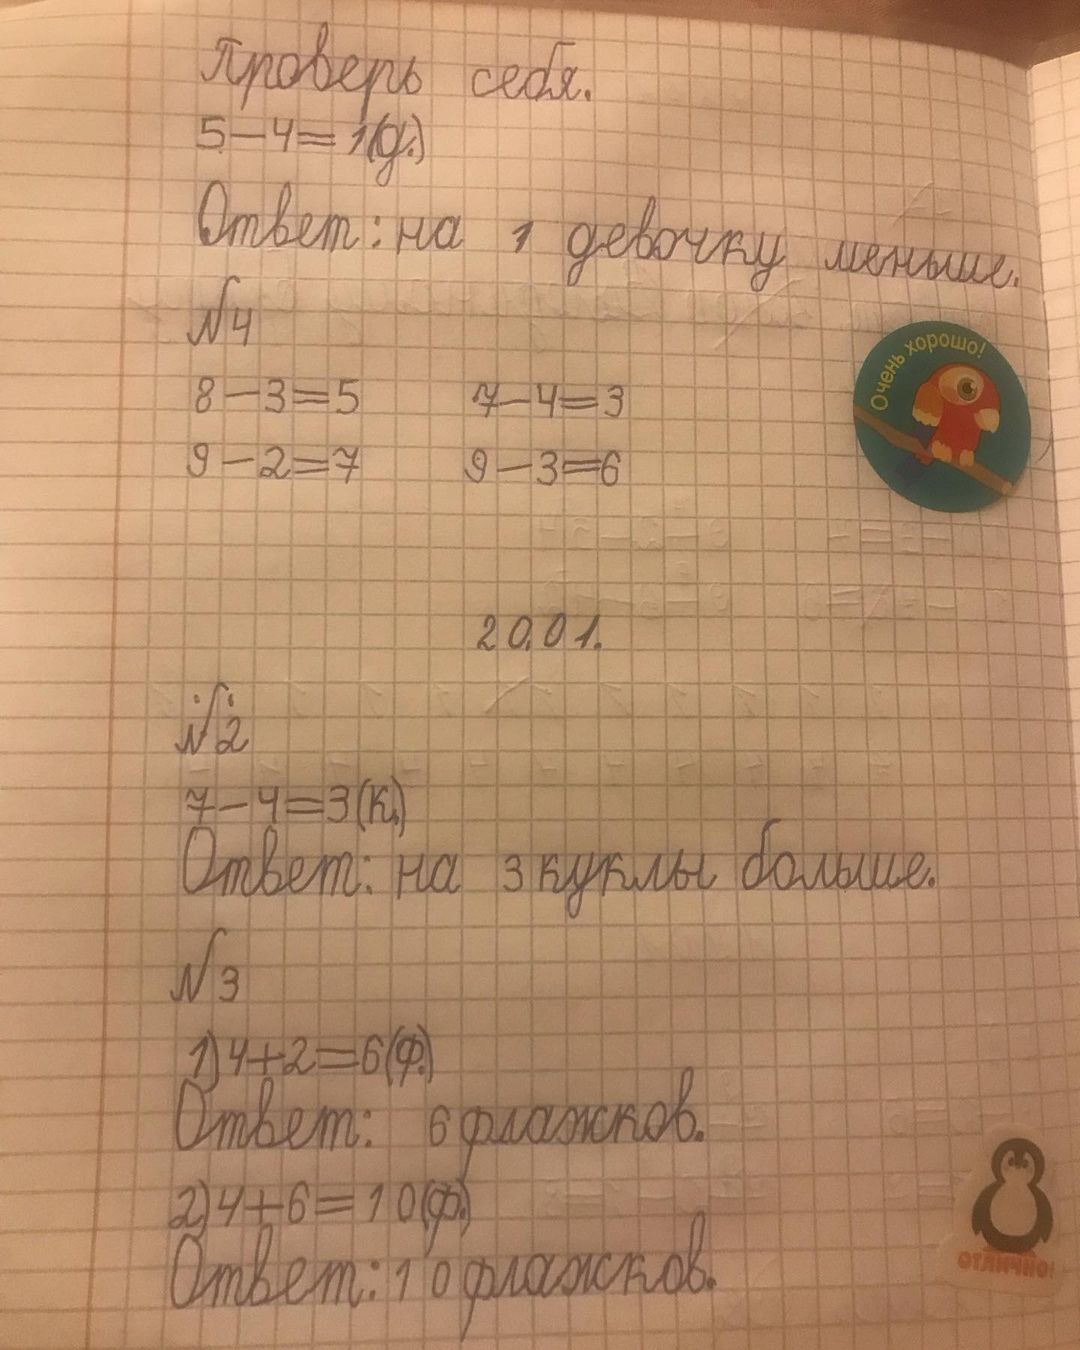 Проверь себя.
5-4=1(д.)
Ответ: на 1 девочку меньше.
№4
Очень хорошо!
8-3=5 7-4=3
9-2=7 9-3=6
20.01.
№2
7-4=3(к.)
Ответ: на 3 куклы больше.
№3
1)4+2=6(ф.)
Ответ: 6 флажков.
2)4+6=10(ф.)
Ответ: 10 флажков.
отлично!